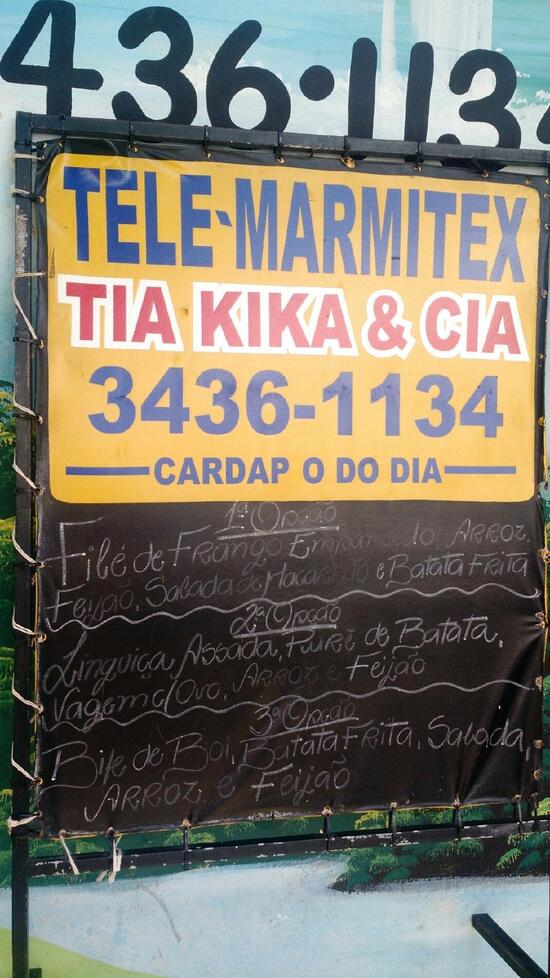 436·113
TELE-MARMITEX
TIA KIKA & CIA
3436-1134
CARDAP O DO DIA
1ª Opção
Filé de Frango Empanado, ARROZ,
Feijão, Salada de Macarrão e Batata Frita
2ª Opção
Linguiça Assada, Purê de Batata,
Vagem c/ Ovo, ARROZ e Feijão
3ª Opção
Bife de Boi, Batata FRita, Salada,
ARROZ e Feijão